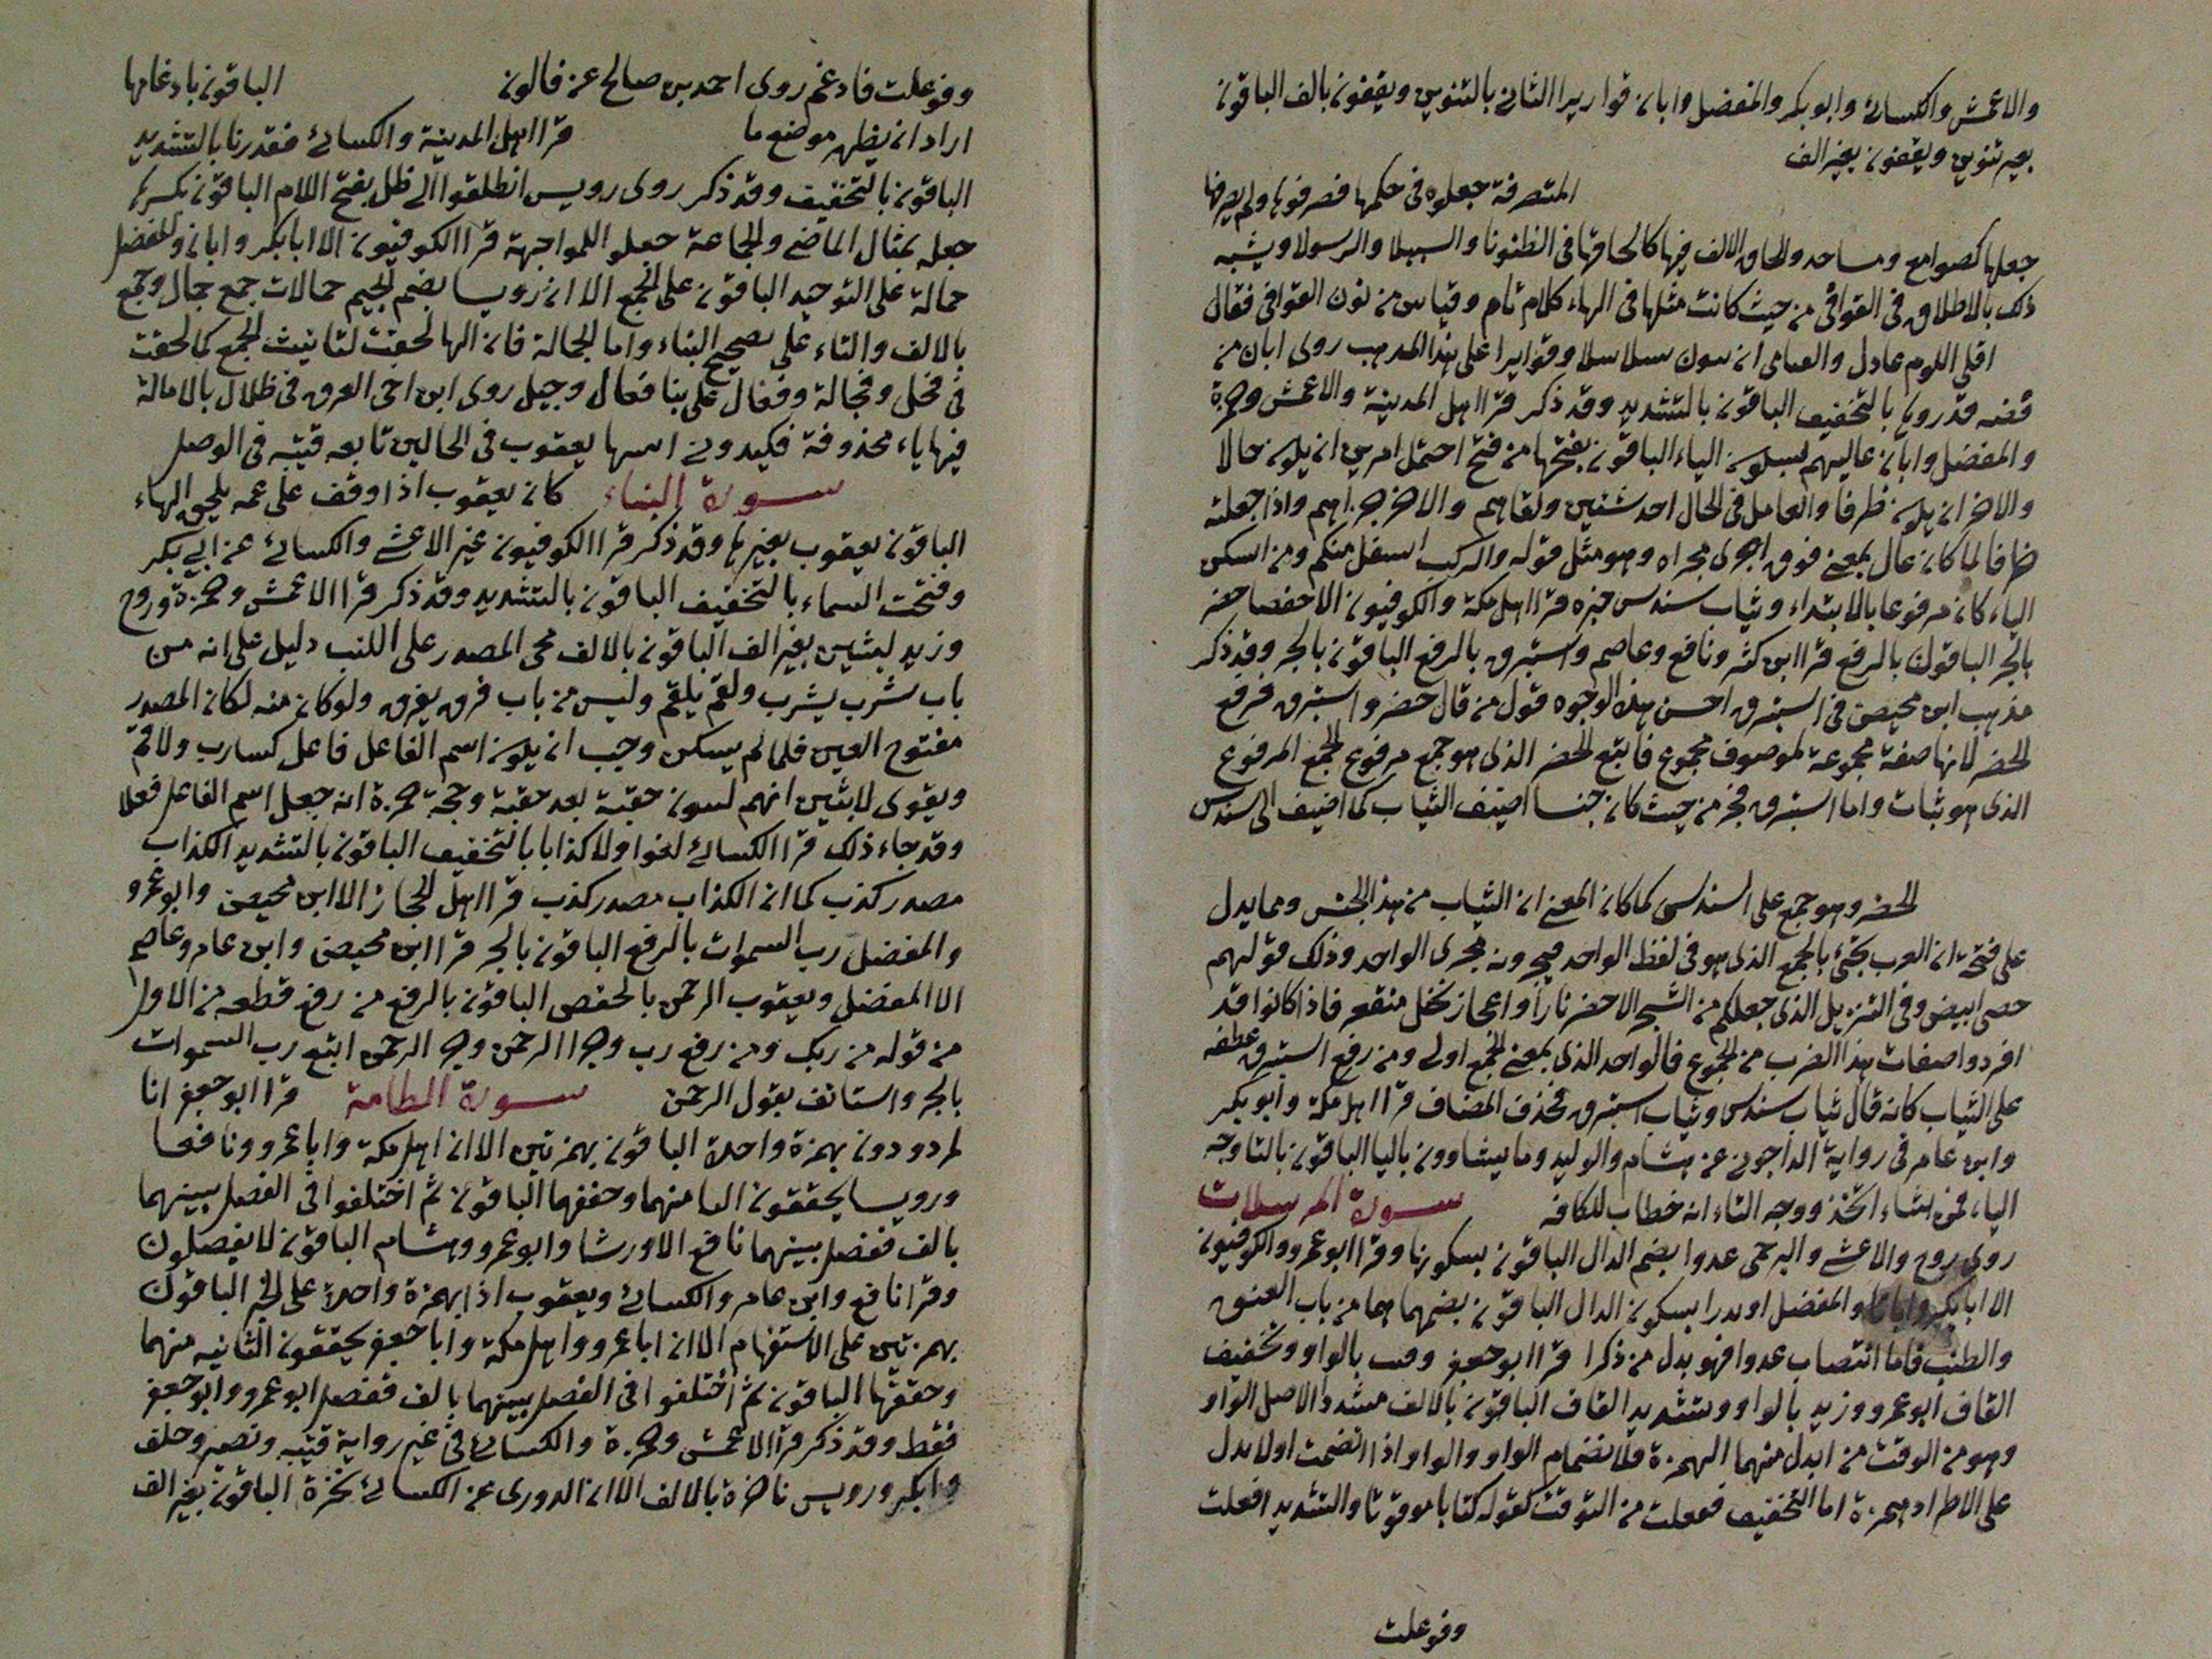 والاعمش والكسائي وابو بكر والمفضل وابان قواريرا الثاني بالتنوين ويقفون بالف الباقون
بغير تنوين ويقفون بغير الف
المتصرفة جعلوه في حكمها فصرفوها ولم يصرفها
جعلها كصوامع ومساجد والحاق الالف فيها كالحاقها في الظنونا والسبيلا والرسولا ويشبه
ذلك بالاطلاق في القوافي من حيث كانت مثلها في الهاء كلام تام وقياس من نون القوافي فقال
اقلي اللوم عاذل والعتابا ان ينون سلاسلا وقواريرا على هذا المذهب روى ابان من
فضه قدروها بالتخفيف الباقون بالتشديد وقد ذكر قرا اهل المدينة والاعمش وحمزة
والمفضل وابان عاليهم بسكون الياء الباقون بفتحها من فتح احتمل امرين ان يكون حالا
والاخر ان يكون ظرفا والعامل في الحال احد شيئين ولقاهم والاخر جزاهم واذا جعلته
ظرفا لما كان عال بمعنى فوق اجرى مجراه وهو مثل قوله والركب اسفل منكم ومن اسكن
الياء كان مرفوعا بالابتداء وثياب سندس خبره قرا اهل مكة والكوفيون الا حفصا خضر
بالجر الباقون بالرفع قرا ابن كثير ونافع وعاصم واستبرق بالرفع الباقون بالجر وقد ذكر
مذهب ابن محيصن في استبرق احسن هذه الوجوه قول من قال خضر واستبرق فرفع
الخضر لانها صفة مجموعة لموصوف مجموع فاتبع الخضر الذي هو جمع مرفوع الجمع المرفوع
الذي هو ثياب واما استبرق فجر من حيث كان جنسا اضيف الثياب كما اضيف الى سندس
الخضر وهو جمع على السندس كما كان المعنى ان الثياب من هذا الجنس ومما يدل
على فتحة ان العرب تجئ بالجمع الذي هو في لفظ الواحد فيجرونه مجرى الواحد وذلك قولهم
حصى ابيض وفي التنزيل الذي جعل لكم من الشجر الاخضر نارا واعجاز نخل منقعر فاذا كانوا قد
افردوا صفات هذا الضرب من المجموع فالواحد الذي بمعنى الجمع اولى ومن رفع استبرق عطفه
على الثياب كانه قال ثياب سندس وثياب استبرق فحذف المضاف قرا اهل مكة وابو بكر
وابن عامر في رواية الداجوني عن هشام والوليد وما يشاوون باليا الباقون بالتا وجه
الياء فمن شاء اتخذ ووجه التاء انه خطاب للكافه سورة المرسلات
روى روح والاعشى والبرجمي عذرا بضم الذال الباقون بسكونها وقرا ابو عمرو والكوفيون
الا ابا بكر وابانا والمفضل او نذرا بسكون الذال الباقون بضمها هما من باب العنق
والطنب فاما انتصاب عذرا فهو بدل من ذكرا قرا ابو جعفر وقتت بالواو وتخفيف
القاف ابو عمرو وزيد بالواو وتشديد القاف الباقون بالالف مشددا الاصل الواو
وهو من الوقت من ابدل منهما الهمزة فلانضمام الواو والواو اذا انضمت اولا بدل
على الاطراد همزة اما التخفيف ففعلت من التوقت كقوله كتابا موقوتا والتشديد افعلت
وفوعلت
وفوعلت فادغم روى احمد بن صالح عن قالون الباقون بادغامها
اراد ان يظهر موضع ما قرا اهل المدينة والكسائي فقدرنا بالتشديد
الباقون بالتخفيف وقد ذكر روى رويس انطلقوا الى ظل بفتح اللام الباقون بكسرها
جعله بمثال الماضي والجماعة جعلوا للمواجهة قرا الكوفيون الا ابا بكر وابان والمفضل
جمالة على التوحيد الباقون على الجمع الا ان رويسا بضم الجيم جمالات جمع جمال وجمع
بالالف والتاء على تصحيح البناء واما الجمالة فان الها لحقت لتانيث الجمع كما لحقت
في فحل وفحالة وفعال على بنا فعال وجيل روى ابن اخي العرق في ظلال بالامالة
فيها ياء محذوفة فكيدوني اسها يعقوب في الحالين تابعه قتيبه في الوصل
سورة النباء كان يعقوب اذا وقف على عمه يلحق الهاء
الباقون يعقوب بغيرها وقد ذكر قرا الكوفيون غير الاعشى والكسائي عن ابي بكر
وفتحت السماء بالتخفيف الباقون بالتشديد وقد ذكر قرا الاعمش وحمزة وروح
وزيد لبثين بغير الف الباقون بالالف مجى المصدر على اللبث دليل على انه من
باب شرب يشرب ولقم يلقم وليس من باب فرق يفرق ولو كان منه لكان المصدر
مفتوح العين فلما لم يسكن وجب ان يكون اسم الفاعل فاعل كسارب ولاقم
ويقوى لابثين انهم لسون حقبة بعد حقبة وحجة حمزة انه جعل اسم الفاعل فعلا
وقد جاء ذلك قرا الكسائي لغوا ولا كذابا بالتخفيف الباقون بالتشديد الكذاب
مصدر كذب كما ان الكذاب مصدر كذب قرا اهل الحجاز الا ابن محيصن وابو عمرو
والمفضل رب السموات بالرفع الباقون بالجر قرا ابن محيصن وابن عامر وعاصم
الا المفضل ويعقوب الرحمن بالخفض الباقون بالرفع من رفع قطعه من الاول
من قوله من ربك ومن رفع رب وجر الرحمن وجر الرحمن اتبع رب السموات
بالجر واستانف بقول الرحمن سورة الطامة قرا ابو جعفر انا
لمردودون بهمزة واحدة الباقون بهمزتين الا ان اهل مكة وابا عمرو ونافعا
ورويسا يحققون الاا منهما وحققهما الباقون ثم اختلفوا في الفصل بينهما
بالف ففصل بينهما نافع الا ورشا وابو عمرو وهشام الباقون لا يفصلون
وقرا نافع وابن عامر والكسائي ويعقوب اذا بهمزة واحدة على الخبر الباقون
بهمزتين على الاستفهام الا ان ابا عمرو واهل مكة وابا جعفر يحققون الثانيه منهما
وحققها الباقون ثم اختلفوا في الفصل بينهما بالف ففصل ابو عمرو وابو جعفر
فقط وقد ذكر قرا الاعمش وحمزة والكسائي في غير رواية قتيبه ونصير وخلف
وابكر ورويس ناخرة بالالف الا ان الدوري عن الكسائي نخرة الباقون بغير الف